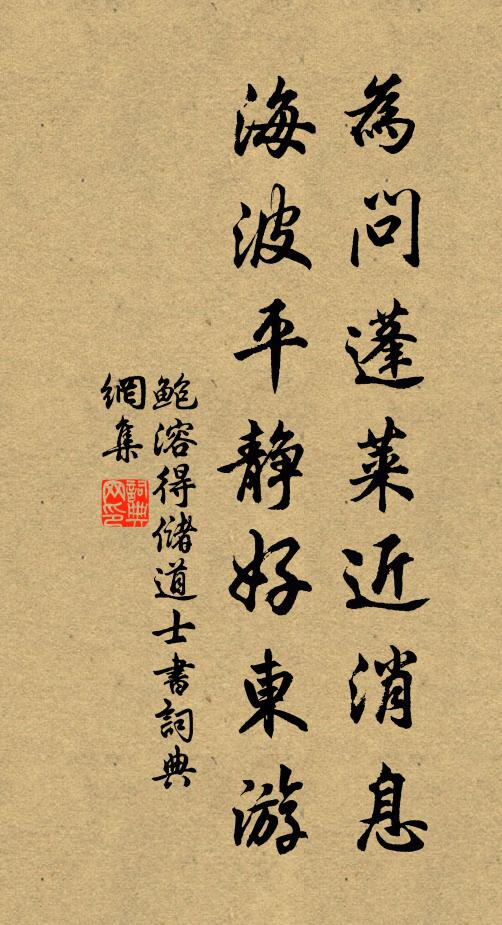 為問蓬萊近消息
海波平静好東游
鲍溶得儲道士書詞典
網集
詞典
网印